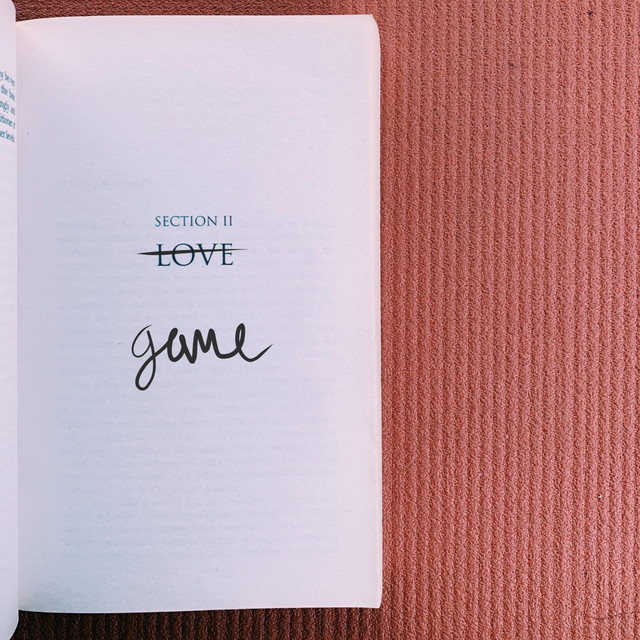 the
SECTION II
LOVE
game